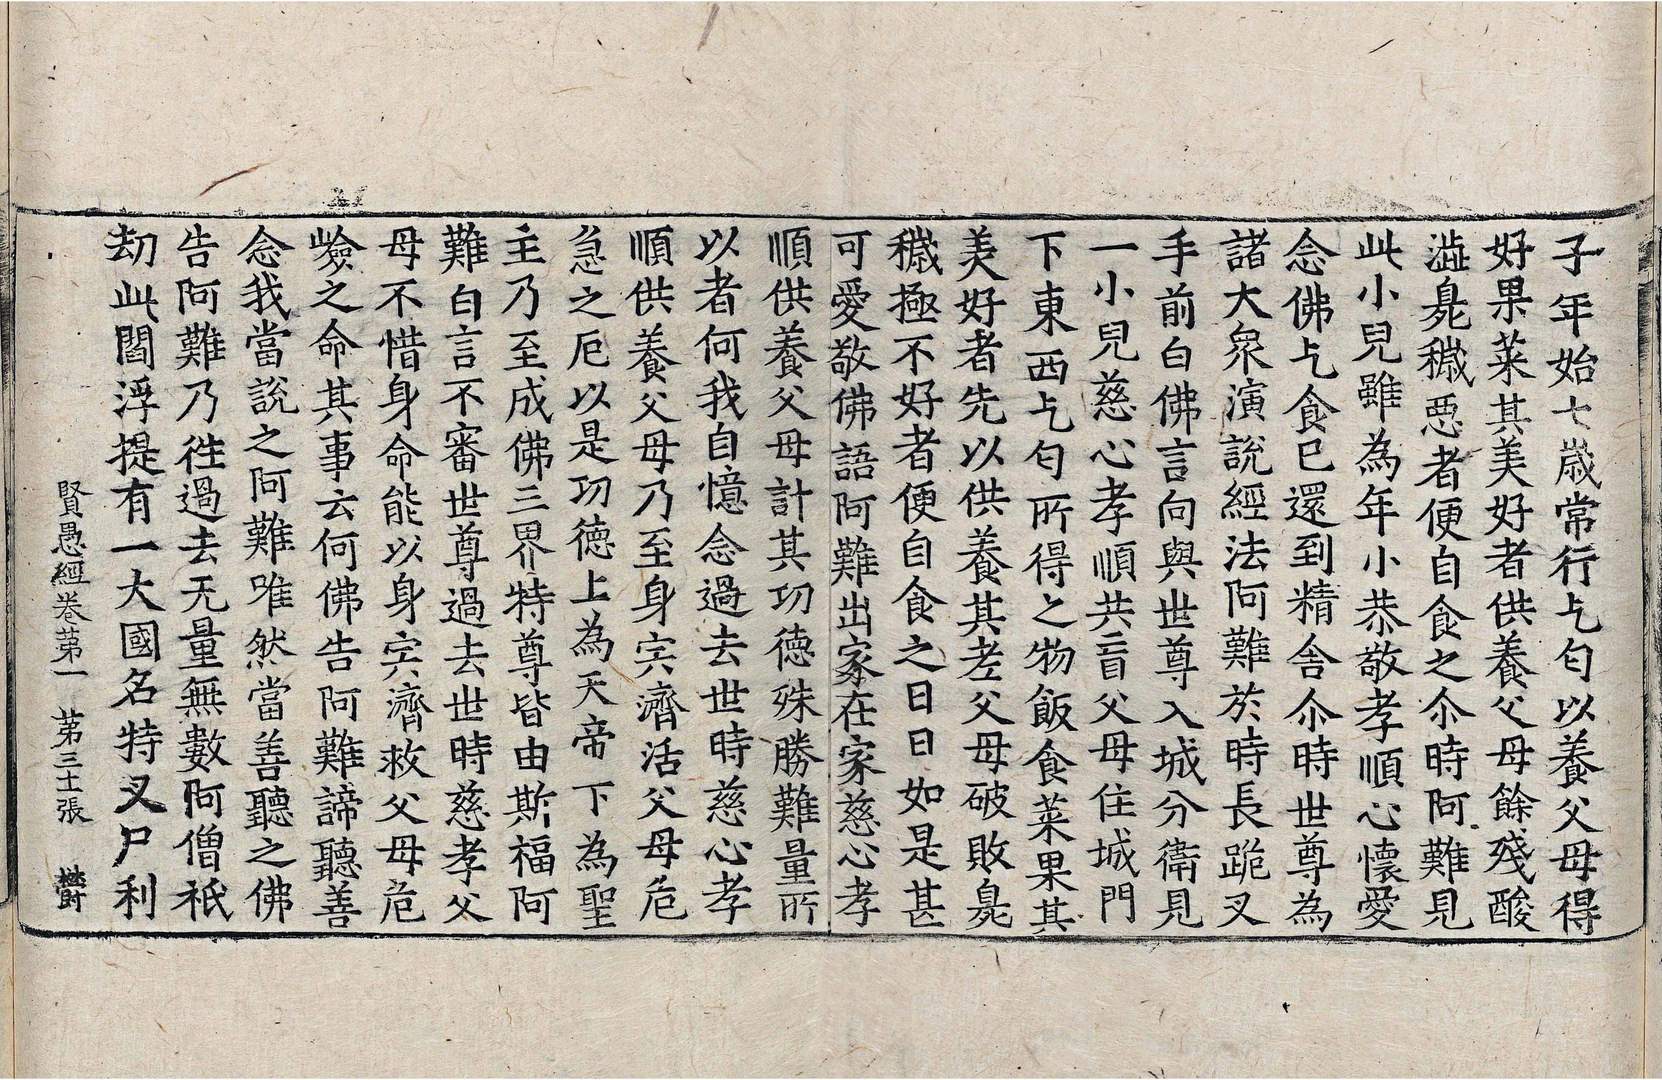 子年始七歲常行乞匃以養父母得
好果菜其美好者供養父母餘殘酸
澁臰穢惡者便自食之尒時阿難見
此小兒雖為年小恭敬孝順心懷愛
念佛乞食已還到精舍尒時世尊為
諸大衆演說經法阿難於時長跪叉
手前白佛言向與世尊入城分衛見
一小兒慈心孝順共盲父母住城門
下東西乞匃所得之物飯食菜果其
美好者先以供養其老父母破敗臰
穢極不好者便自食之日日如是甚
可愛敬佛語阿難出家在家慈心孝
順供養父母計其功德殊勝難量所
以者何我自憶念過去世時慈心孝
順供養父母乃至身宍濟活父母危
急之厄以是功德上為天帝下為聖
主乃至成佛三界特尊皆由斯福阿
難白言不審世尊過去世時慈孝父
母不惜身命能以身宍濟救父母危
嶮之命其事云何佛告阿難諦聽善
念我當說之阿難唯然當善聽之佛
告阿難乃往過去无量無數阿僧祇
劫此閻浮提有一大國名特叉尸利
賢愚經卷苐一 苐三十張 欝